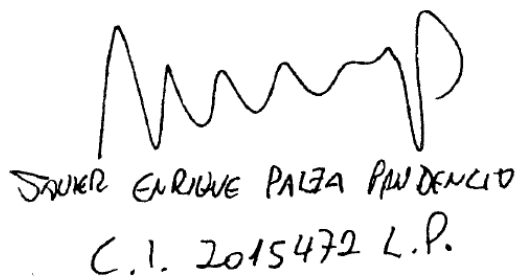 JAVIER ENRIQUE PALZA PRUDENCIO
C.I. 2015472 L.P.